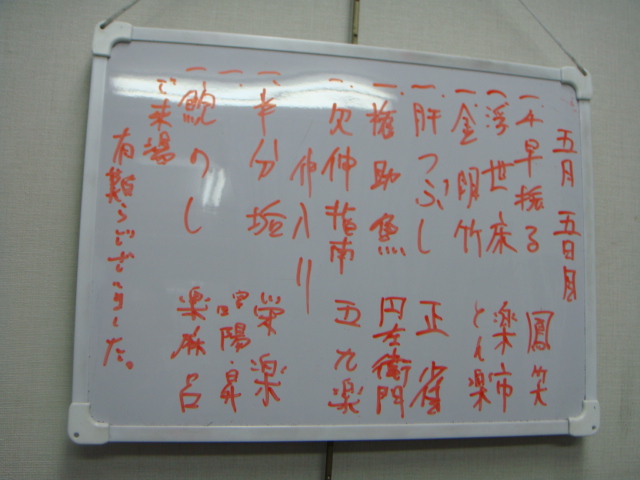 五月 五日月
一、千早振る 鳳笑
一、浮世床 楽市
一、金明竹 とん楽
一、肝つぶし 正雀
一、権助魚 円左衛門
一、欠伸指南 五九楽
仲入り
一、半分垢 栄楽
一、 宮田陽・昇
一、鮑のし 楽麻呂
ご来場
有難うございました。